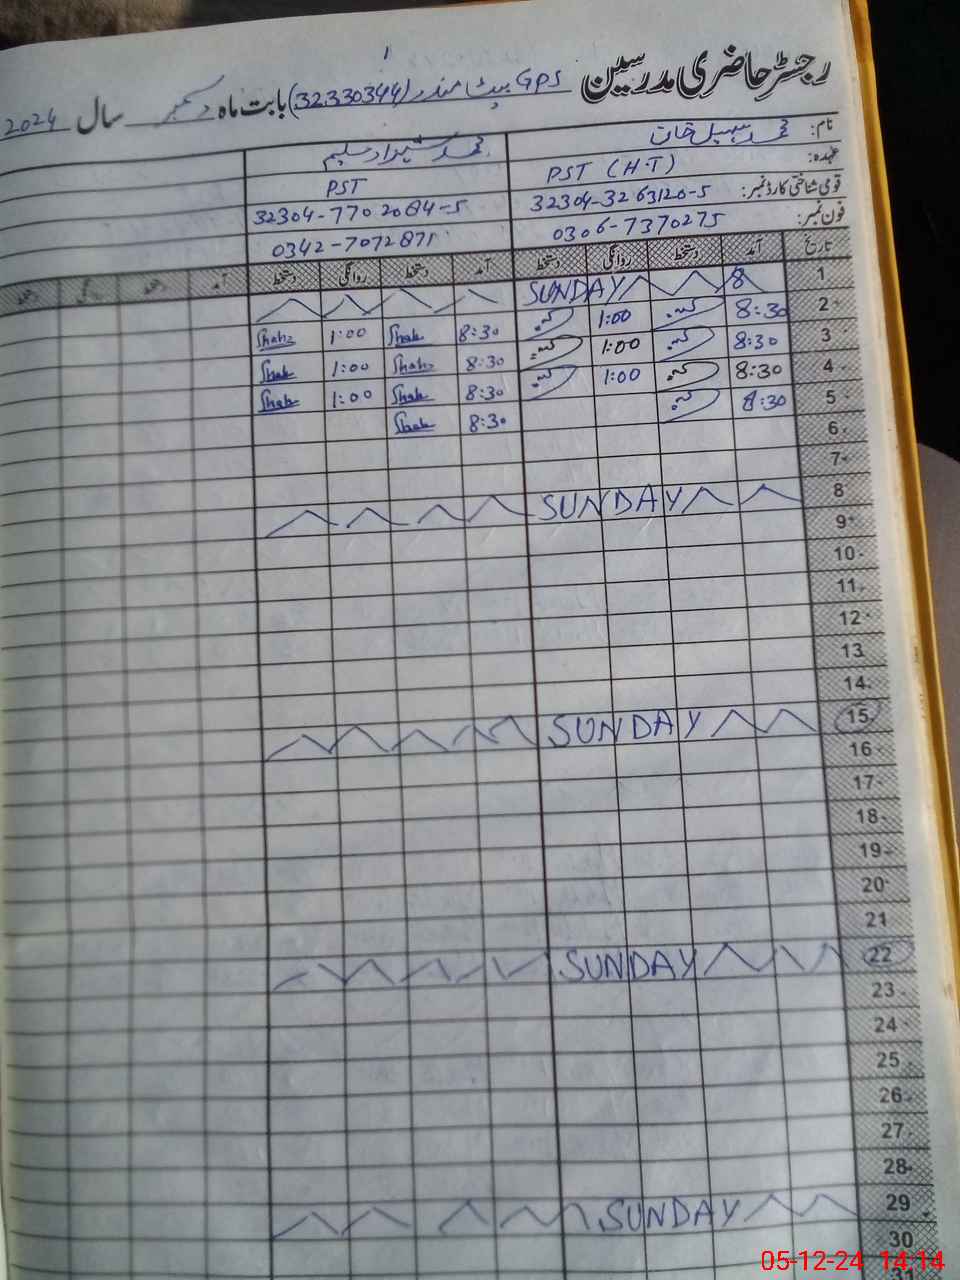 رجسٹر حاضری مدرسین GPS بیٹ مندر (32330344) بابت ماہ دسمبر سال 2024
نام: محمد سہیل خان محمد شہزاد سلیم
عہدہ: PST (H.T) PST
قومی شناختی کارڈ نمبر: 32304-3263120-5 32304-7702084-5
فون نمبر: 0306-7370275 0342-7072871
تاریخ آمد دستخط روانگی دستخط آمد دستخط روانگی دستخط آمد دستخط روانگی دستخط
1 8 SUNDAY
2 8:30 1:00 8:30 Shah 1:00 Shah
3 8:30 1:00 8:30 Shah 1:00 Shah
4 8:30 1:00 8:30 Shah 1:00 Shah
5 8:30 8:30 Shah
6
7
8 SUNDAY
9
10
11
12
13
14
15 SUNDAY
16
17
18
19
20
21
22 SUNDAY
23
24
25
26
27
28
29 SUNDAY
30
31
05-12-24 14:14